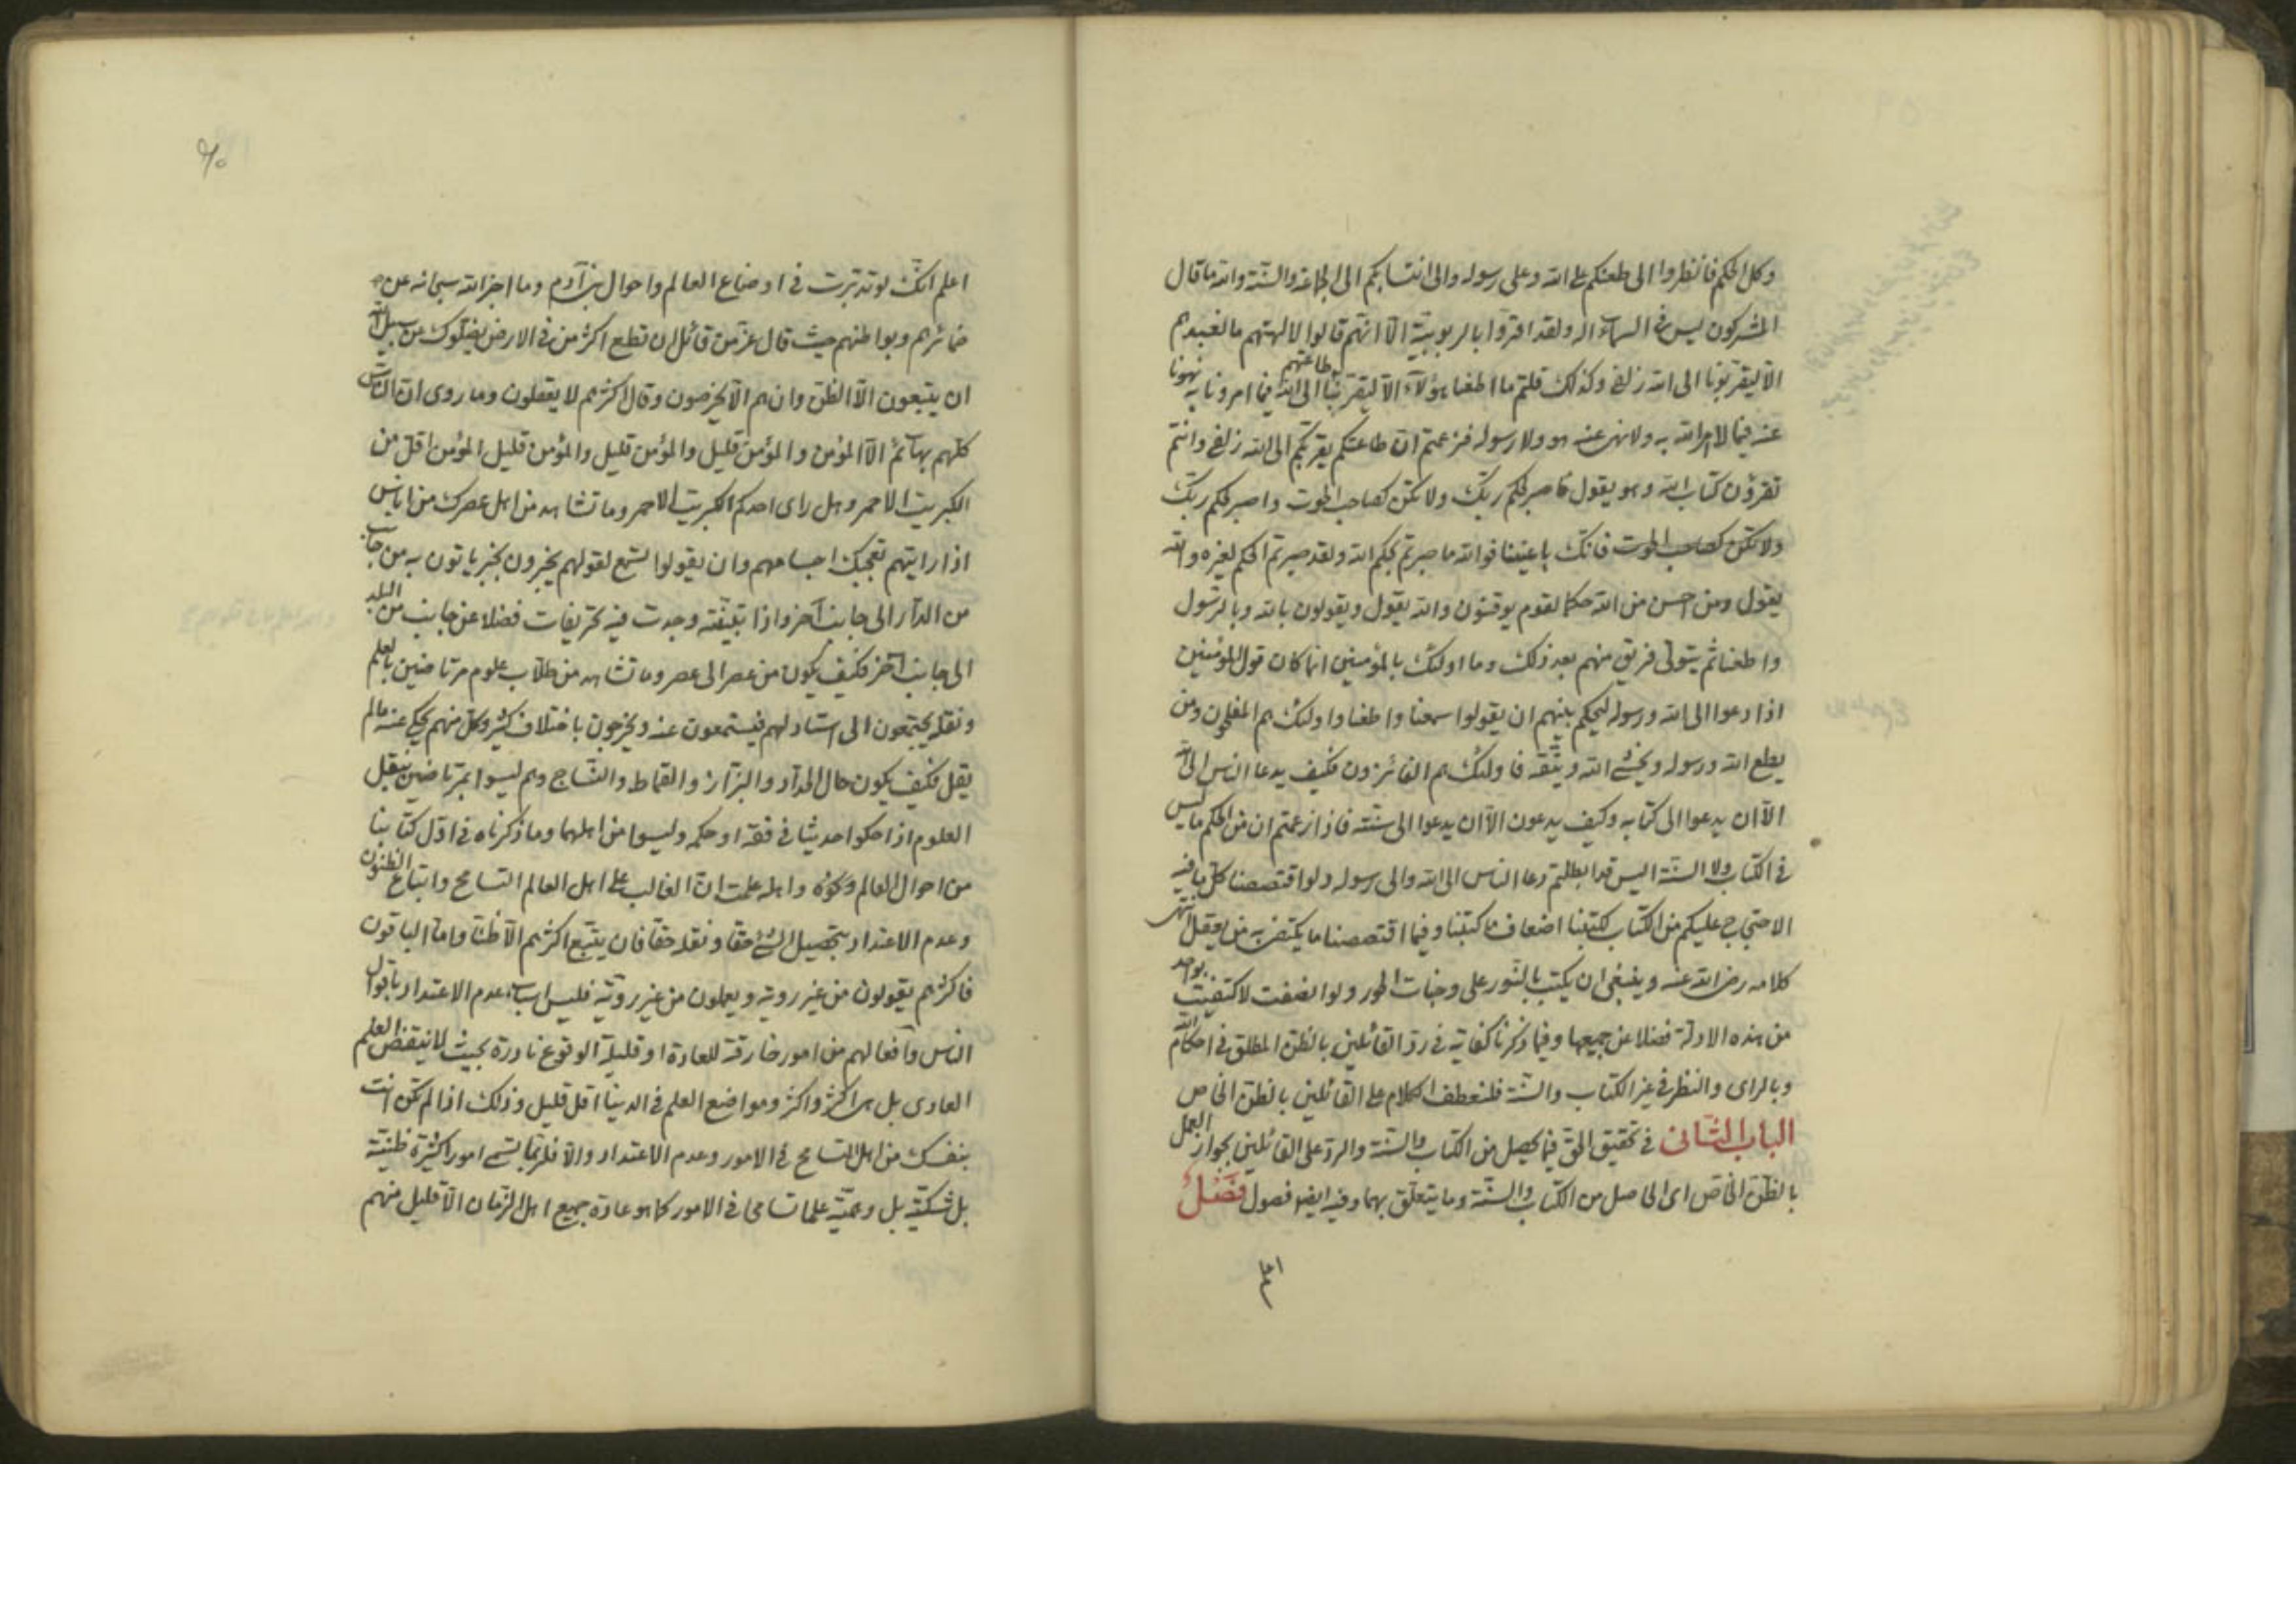 وكل الحكم فانظروا الى طعنكم على الله وعلى رسوله والى انتسابكم الى الطاعة والسنة والله ما قال
المشركون ليس فى السماء اله ولقد اقروا بالربوبية الا انهم قالوا لالهتهم ما نعبدهم
الا ليقربونا الى الله زلفى وكذلك قلتم ما اطعنا هؤلآء الا ليقربنا طاعتهم الى الله فيما امرونا به نهونا
عنه فيما لا امر الله به ولا نهى عنه هو ولا رسوله فزعمتم ان طاعتكم يقربكم الى الله زلفى وانتم
تقرؤن كتاب الله وهو يقول فاصبر لحكم ربك ولا تكن كصاحب الحوت واصبر لحكم ربك
ولا تكن كصاحب الحوت فانك باعيننا فوالله ما صبرتم لحكم الله ولقد صبرتم الحكم لغيره والله
يقول ومن احسن من الله حكما لقوم يوقنون والله يقول ويقولون بالله وبالرسول
واطعنا ثم يتولى فريق منهم بعد ذلك وما اولئك بالمؤمنين انما كان قول المؤمنين
اذا دعوا الى الله ورسوله ليحكم بينهم ان يقولوا سمعنا واطعنا واولئك هم المفلحون ومن
يطع الله ورسوله ويخشى الله ويتقه فاولئك هم الفائزون فكيف يدعا الناس الى الله
الا ان يدعوا الى كتابه وكيف يدعون الا ان يدعوا الى سنته فاذا زعمتم ان من الحكم ما ليس
فى الكتاب ولا السنة اليس قد ابطلتم دعا الناس الى الله والى رسوله ولو اقتصصنا كل ما فيه
الاحتجاج عليكم من الكتاب لكتبنا اضعاف ما كتبنا وفيما اقتصصنا ما يكتفى به من يعقل انتهى
كلامه رضى الله عنه وينبغى ان يكتب بالنور على وجنات الحور ولو انصفت لاكتفيت بواحد
من هذه الادلة فضلا عن جميعها وفيما ذكرنا كفاية فى رد القائلين بالظن المطلق فى احكام الله
وبالراى والنظر فى غير الكتاب والسنة فلنعطف الكلام على القائلين بالظن الخاص
الباب الثانى فى تحقيق الحق فيما يحصل من الكتاب والسنة والرد على القائلين بجواز العمل
بالظن الخاص اى الحاصل من الكتاب والسنة وما يتعلق بهما وفيه ايضا فصول فصل
اعلم
اعلم انك لو تدبرت فى اوضاع العالم واحوال بنى آدم وما اخبر الله سبحانه عن
ضمائرهم وبواطنهم حيث قال عز من قائل ان تطع اكثر من فى الارض يضلوك عن سبيل الله
ان يتبعون الا الظن وان هم الا يخرصون وقال اكثرهم لا يعقلون وما روى ان الناس
كلهم بهائم الا المؤمن والمؤمن قليل والمؤمن قليل والمؤمن قليل المؤمن اقل من
الكبريت الاحمر وهل راى احدكم الكبريت الاحمر وما تشاهد من اهل عصرك من اناس
اذا رايتهم تعجبك اجسامهم وان يقولوا تسمع لقولهم يخبرون بخبر ياتون به من جانب
من الدار الى جانب آخر واذا تيقنته وجدت فيه تحريفات فضلا عن جانب من البلد
الى جانب آخر فكيف يكون من عصر الى عصر وما تشاهد من طلاب علوم مرتاضين بالعلم
ونقله يجتمعون الى استاد لهم فيستمعون عنه ويخرجون باختلاف كثير وكل منهم يحكى عنه ما لم
يقل فكيف يكون حال الحداد والبزاز والقماط والنساج وهم ليسوا بمرتاضين بنقل
العلوم اذا حكوا حديثا فى فقه او حكمه وليسوا من اهلهما وما ذكرناه فى اول كتابنا
من احوال العالم وكونه واهله علمت ان الغالب على اهل العالم التسامح واتباع الظنون
وعدم الاعتداد بتحصيل الشئ حقا ونقله حقا فان يتبع اكثرهم الا ظنا واما الباقون
فاكثرهم يقولون من غير روية ويعملون من غير روية فليس اسباب عدم الاعتداد باقوال
الناس وافعالهم من امور خارقة للعادة او قليلة الوقوع نادرة بحيث لا ينتقض العلم
العادى بل هى اكثر واكثر ومواضع العلم فى الدنيا اقل قليل وذلك اذا لم تكن انت
بنفسك من اهل التسامح فى الامور وعدم الاعتداد والا فلربما تسمى امورا كثيرة ظنية
بل شكية بل وهمية علما تسامحا فى الامور كما هو عادة جميع اهل الزمان الا قليل منهم